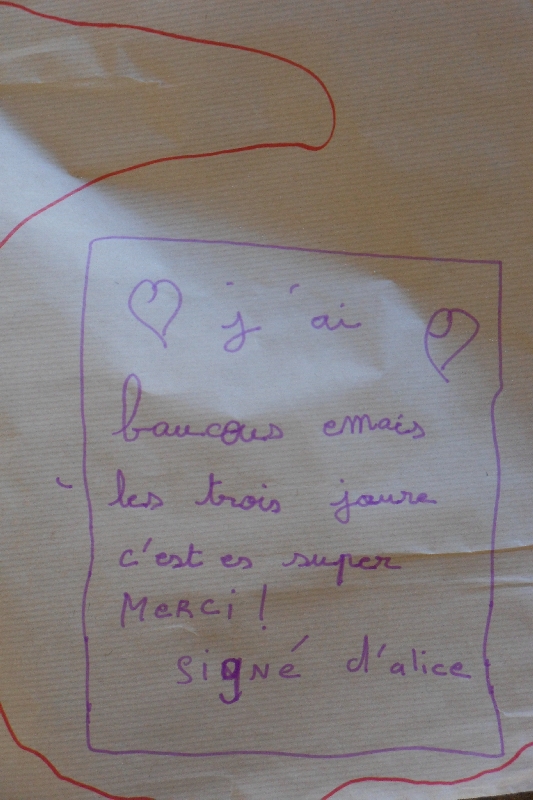 j'ai
baucous emais
les trois jours
c'est es super
MERCi !
signé d'alice